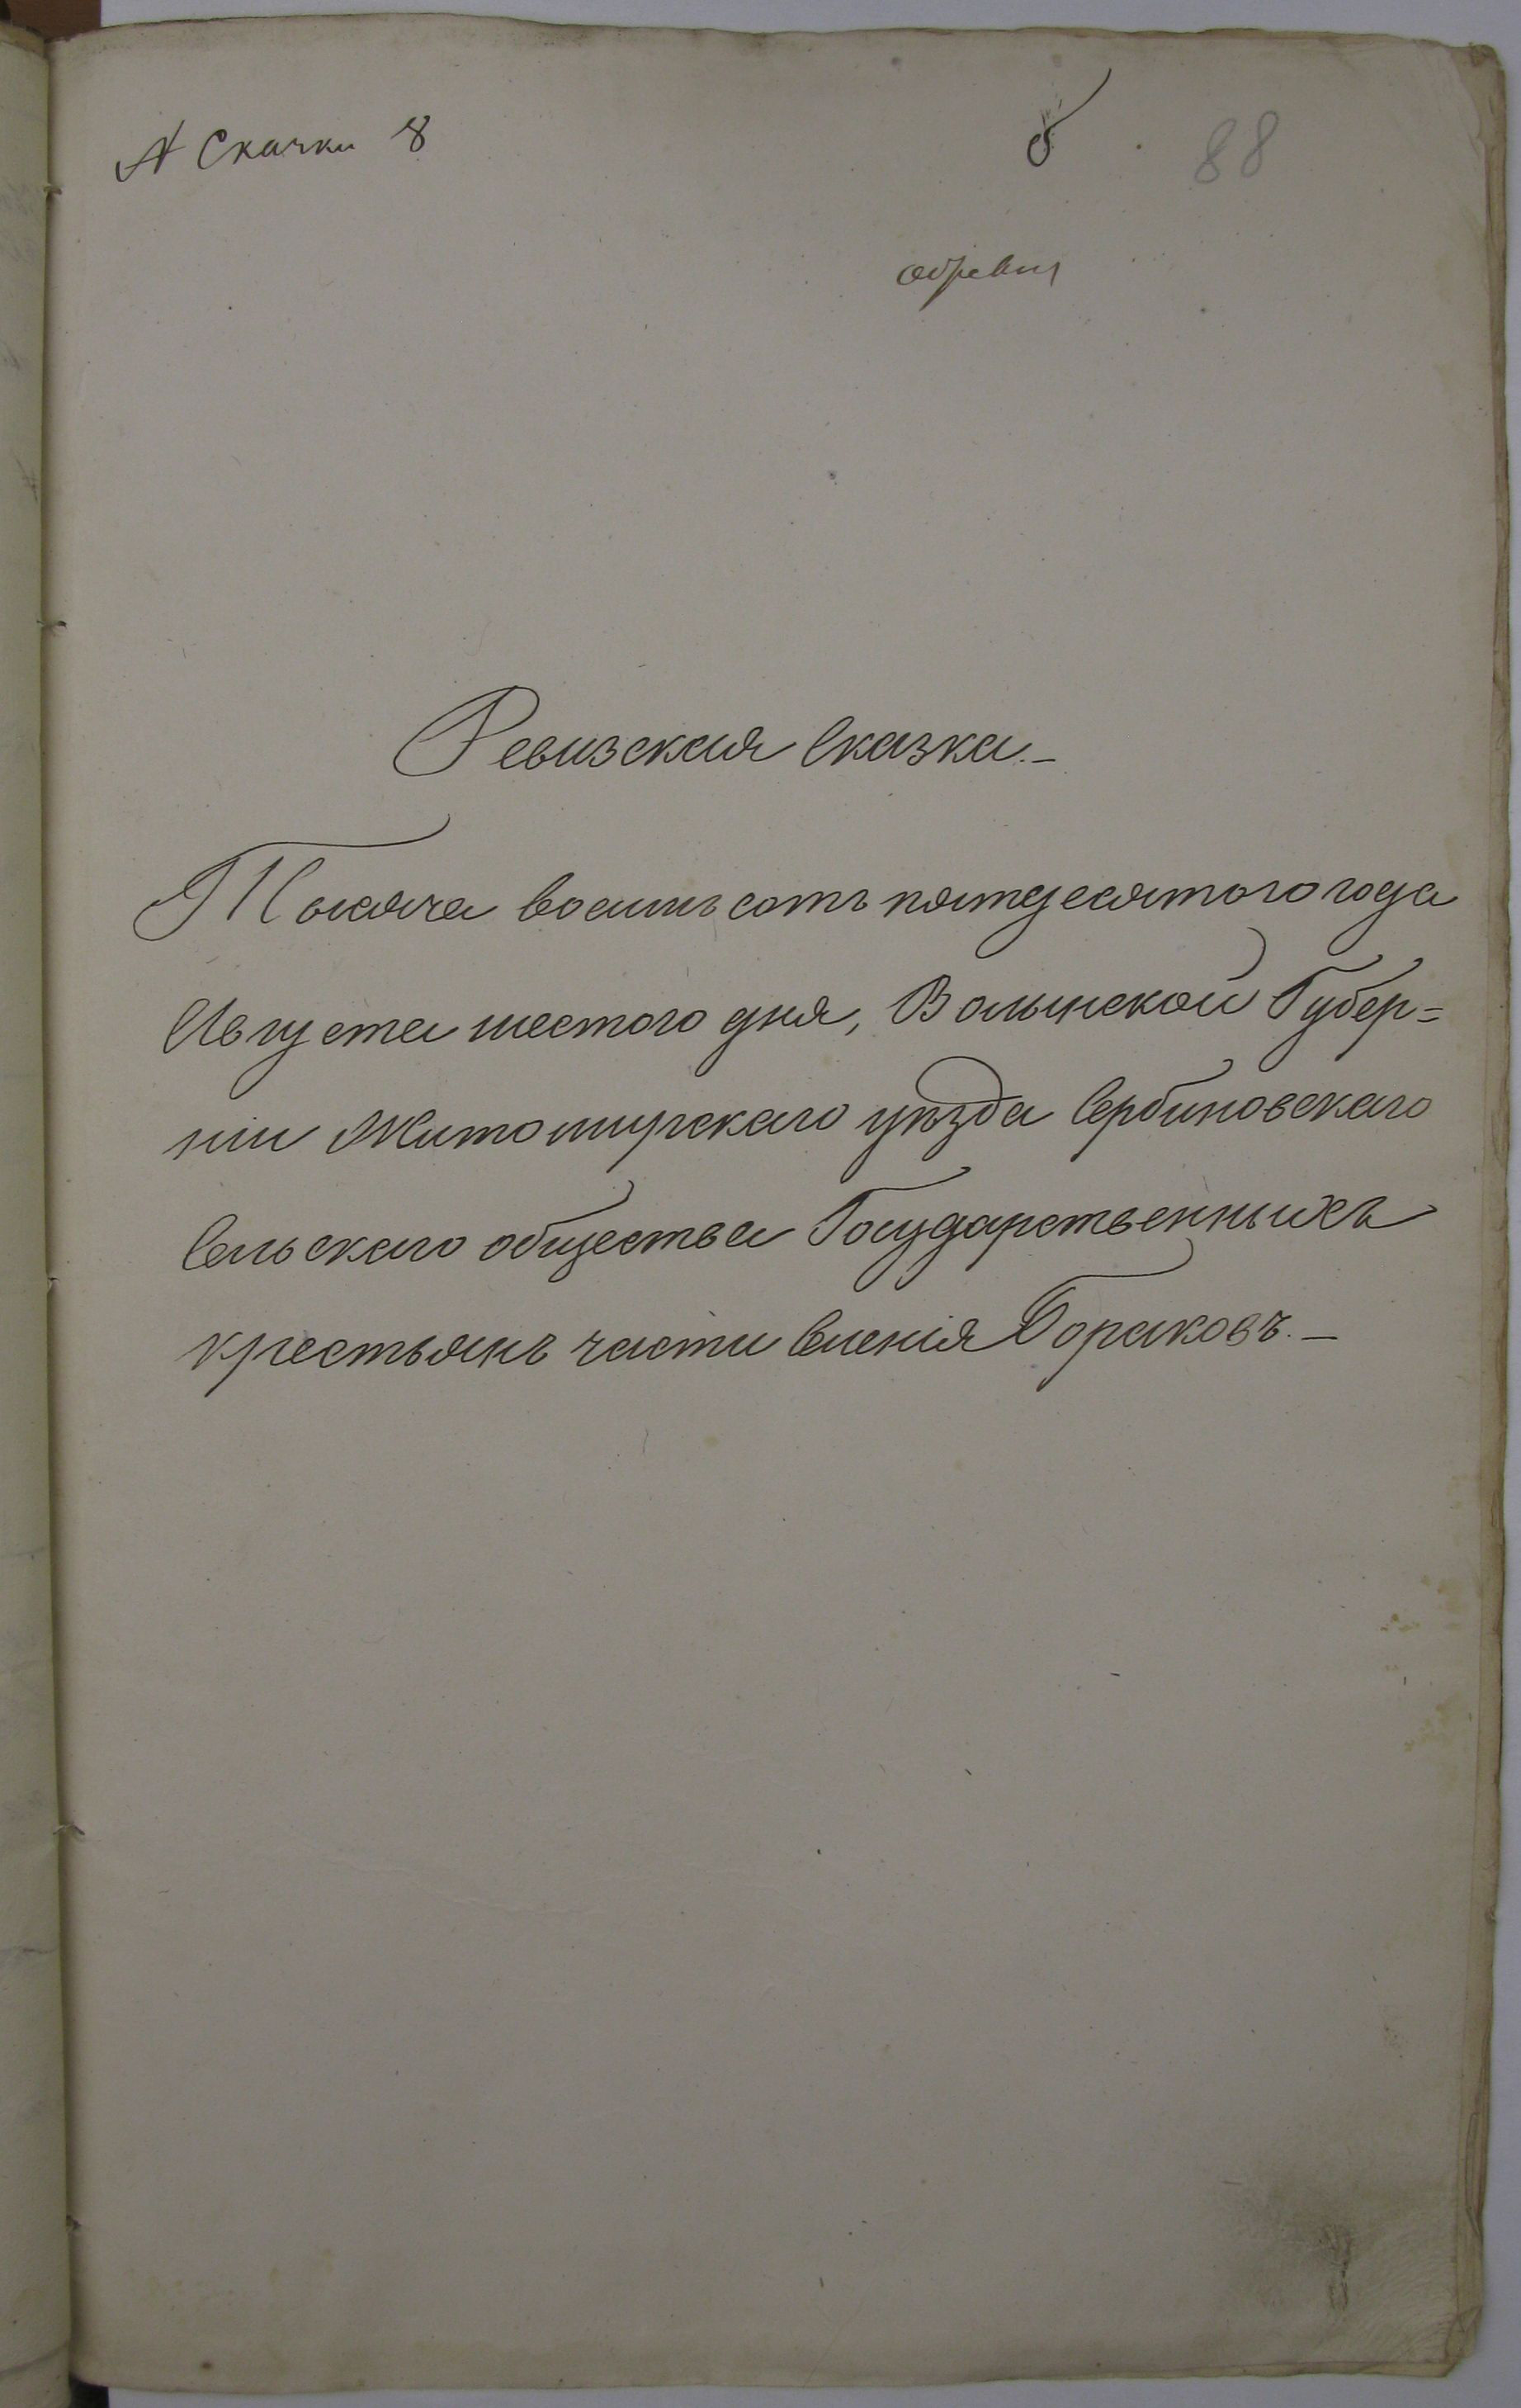 № Скачки 8
88
Ревизская Сказка.–
Тысяча восимъ сотъ пятдесятого года
Августа шестого дня, Волынской Губер=
ніи Житомирскаго уѣзда Сербиновскаго
Сельскаго общества Государственныхъ
крестьянъ части Сленія Бораковъ.–